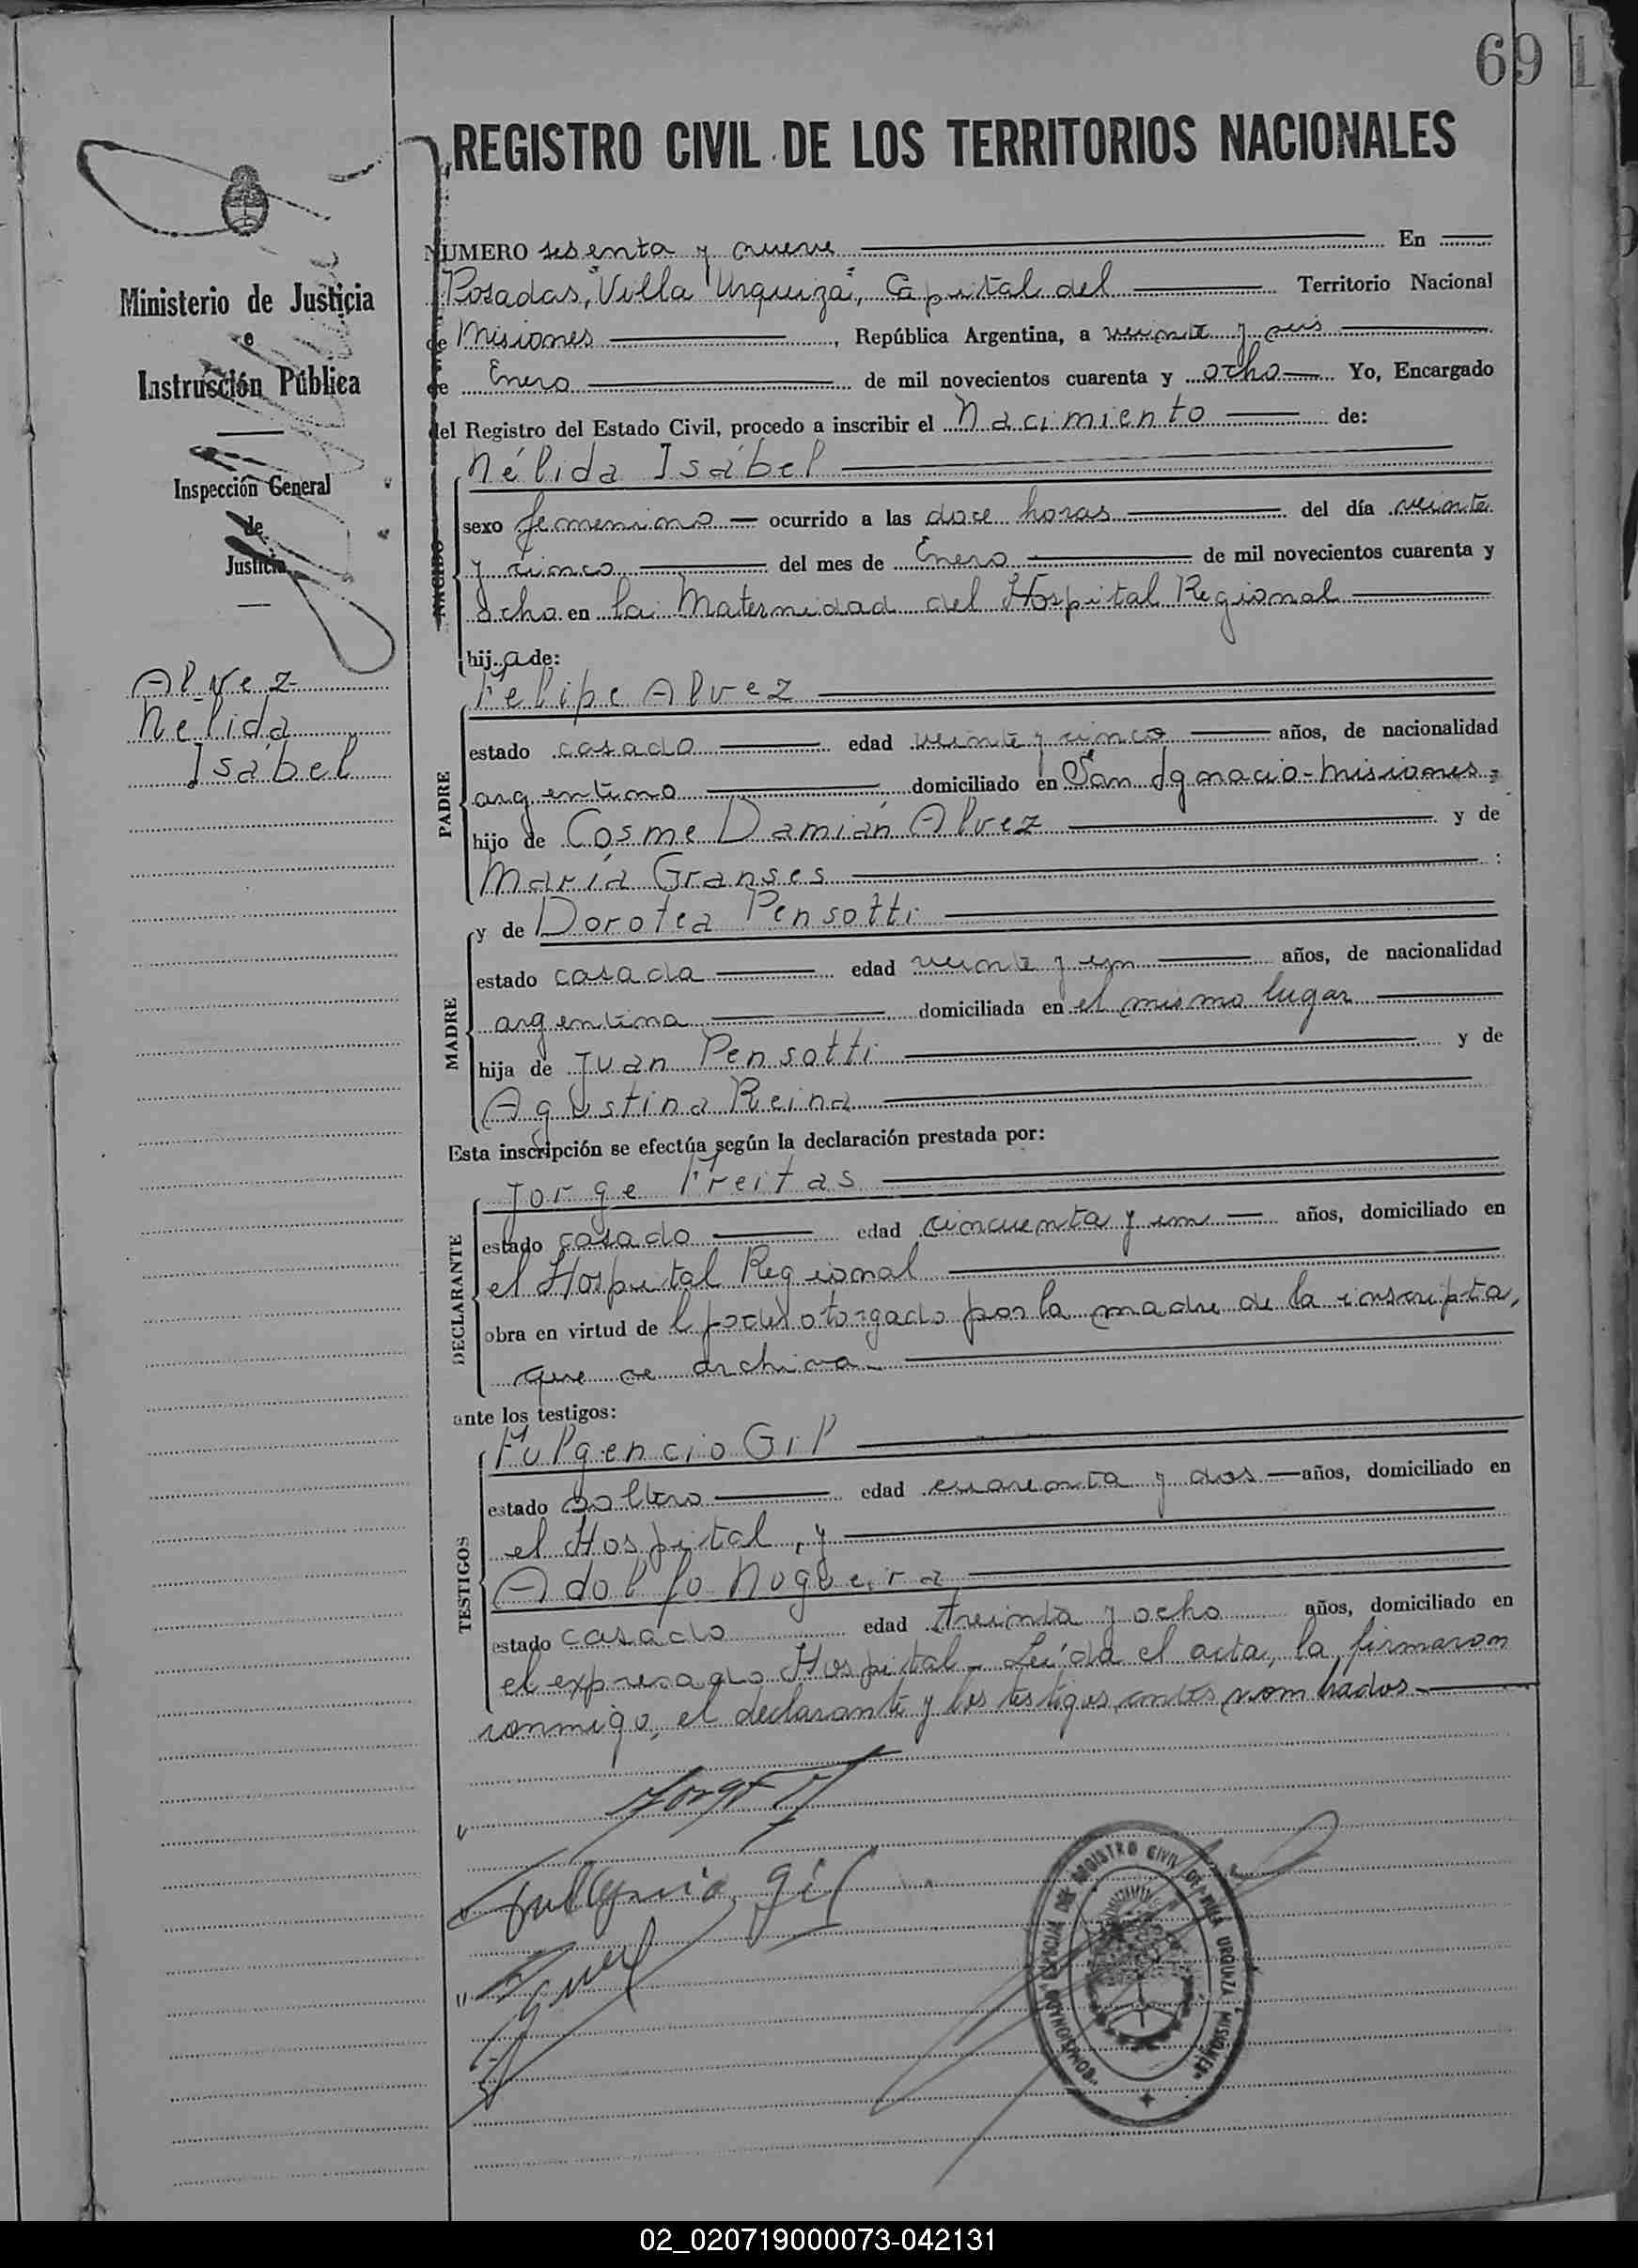 69
REGISTRO CIVIL DE LOS TERRITORIOS NACIONALES
Ministerio de Justicia
e
Instrucción Pública
Inspección General
de
Justicia
Alvez
Nélida
Isábel
NUMERO sesenta y nueve En
Posadas, "Villa Urquiza", Capital del Territorio Nacional
de Misiones, República Argentina, a veinte y seis
de Enero de mil novecientos cuarenta y ocho Yo, Encargado
del Registro del Estado Civil, procedo a inscribir el Nacimiento de:
NACIDO
Nélida Isábel
sexo femenino ocurrido a las doce horas del día veinte
y cinco del mes de Enero de mil novecientos cuarenta y
ocho en la Maternidad del Hospital Regional
hija de:
PADRE
Felipe Alvez
estado casado edad veinte y cinco años, de nacionalidad
argentino domiciliado en San Ignacio-Misiones,
hijo de Cosme Damián Alvez y de
María Granses :
MADRE
y de Dorotea Pensotti
estado casada edad veinte y un años, de nacionalidad
argentina domiciliada en el mismo lugar
hija de Juan Pensotti y de
Agustina Reina
Esta inscripción se efectúa según la declaración prestada por:
DECLARANTE
Jorge Freitas
estado casado edad cincuenta y un años, domiciliado en
el Hospital Regional
obra en virtud del poder otorgado por la madre de la inscripta,
que se archiva.
ante los testigos:
TESTIGOS
Fulgencio Gil
estado soltero edad cuarenta y dos años, domiciliado en
el Hospital, y
Adolfo Nogueira
estado casado edad treinta y ocho años, domiciliado en
el expresado Hospital. Leída el acta, la firmaron
conmigo, el declarante y los testigos antes nombrados.
Fulgencio Gil
REGISTRO CIVIL DE VILLA URQUIZA MISIONES
02_020719000073-042131